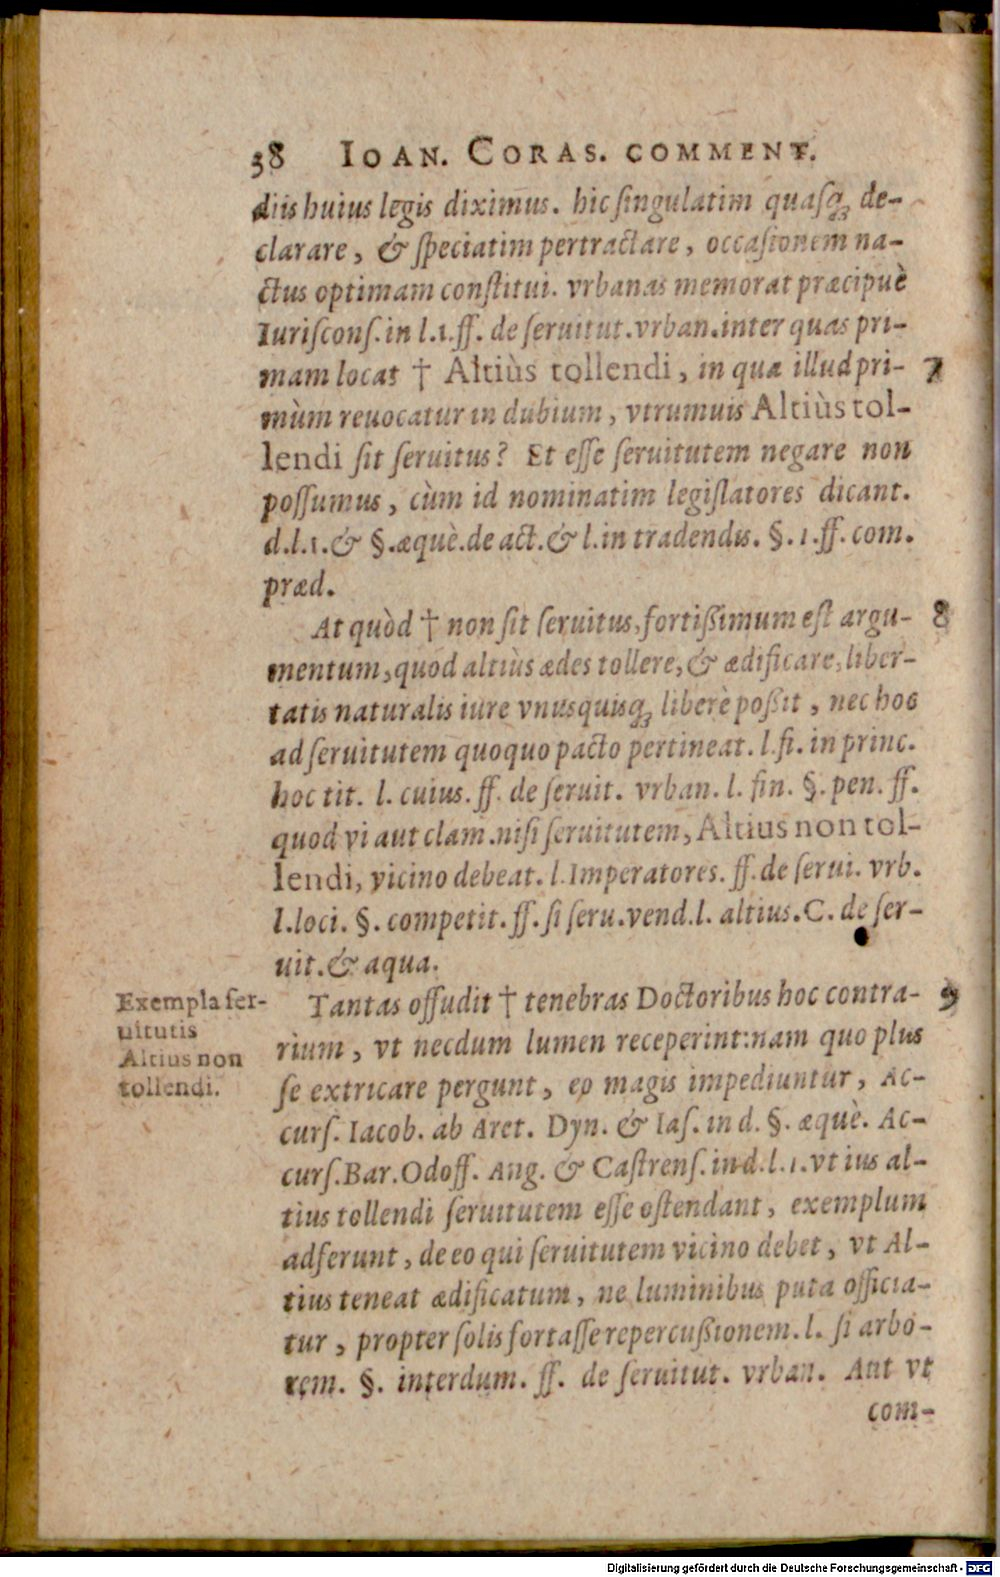 38 IOAN. CORAS. COMMENT.
diis huius legis diximus. hic singulatim quasq; de-
clarare, & speciatim pertractare, occasionem na-
ctus optimam constitui. vrbanas memorat præcipuè
Iuriscons. in l.1.ff. de seruitut.vrban.inter quas pri-
mam locat † Altiùs tollendi, in qua illud pri- 7
mùm reuocatur in dubium, vtrumuis Altiùs tol-
lendi sit seruitus? Et esse seruitutem negare non
possumus, cùm id nominatim legislatores dicant.
d.l.1.& §.æquè.de act.& l.in tradendis. §.1.ff. com.
præd.
At quòd † non sit seruitus, fortißimum est argu- 8
mentum, quòd altiùs ædes tollere, & ædificare, liber-
tatis naturalis iure vnusquisq; liberè poßit, nec hoc
ad seruitutem quoquo pacto pertineat. l.fi. in princ.
hoc tit. l. cuius. ff. de seruit. vrban. l. fin. §. pen. ff.
quod vi aut clam.nisi seruitutem, Altius non tol-
lendi, vicino debeat. l.Imperatores. ff.de serui. vrb.
l.loci. §. competit. ff. si seru.vend.l. altius.C. de ser-
uit.& aqua.
Exempla ser-
uitutis
Altius non
tollendi.
Tantas offudit † tenebras Doctoribus hoc contra- 9
rium, vt necdum lumen receperint:nam quo plus
se extricare pergunt, eo magis impediuntur, Ac-
curs. Iacob. ab Aret. Dyn. & Ias. in d. §. æquè. Ac-
curs.Bar.Odoff. Ang. & Castrens.in d.l.1.vt ius al-
tius tollendi seruitutem esse ostendant, exemplum
adferunt, de eo qui seruitutem vicino debet, vt Al-
tius teneat ædificatum, ne luminibus puta officia-
tur, propter solis fortasse repercußionem.l. si arbo-
rem. §. interdum. ff. de seruitut. vrban. Aut vt
com-
Digitalisierung gefördert durch die Deutsche Forschungsgemeinschaft - DFG